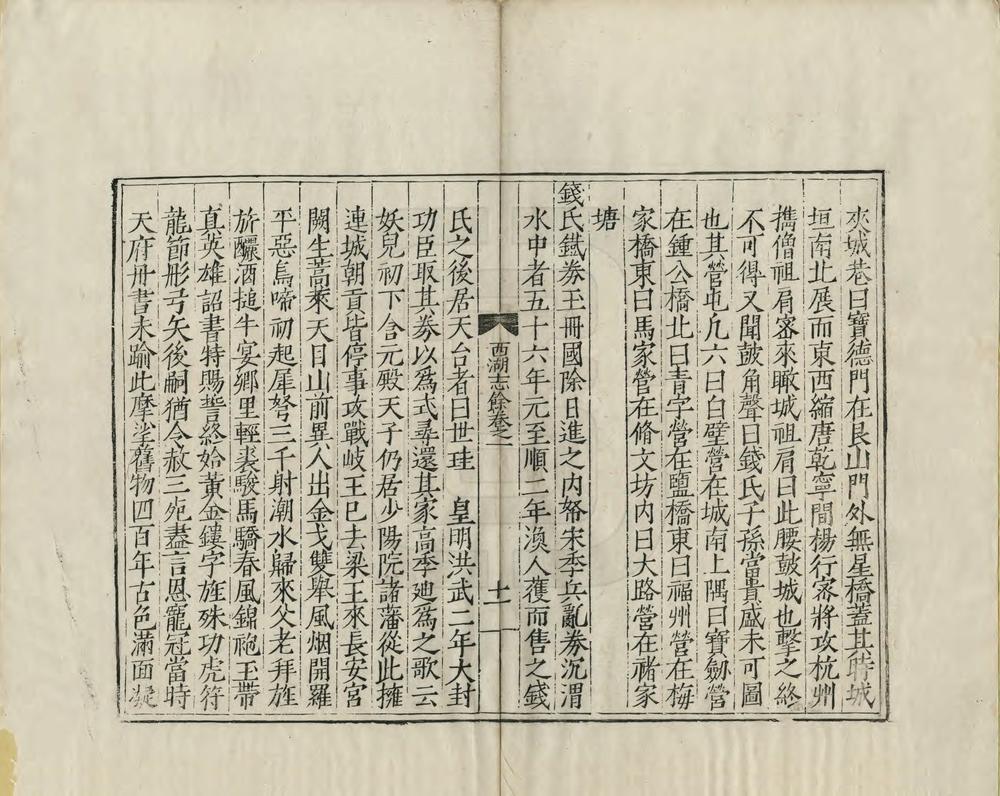 夾城巷曰寶德門在艮山門外無星橋蓋其時城
垣南北展而東西縮唐乾寧間楊行密將攻杭州
攜僧祖肩密來瞰城祖肩曰此腰鼓城也擊之終
不可得又聞鼓角聲曰錢氏子孫當貴盛未可圖
也其營屯凡六曰白壁營在城南上隅曰寶劒營
在鍾公橋北曰青字營在鹽橋東曰福州營在梅
家橋東曰馬家營在脩文坊內曰大路營在褚家
塘
錢氏鐵券王冊國除日進之內帑宋季兵亂券沉渭
水中者五十六年元至順二年漁人獲而售之錢
西湖志餘卷之一
十一
氏之後居天台者曰世珪 皇明洪武二年大封
功臣取其券以為式尋還其家高季迪為之歌云
妖兒初下含元殿天子仍居少陽院諸藩從此擁
連城朝貢皆停事攻戰岐王已去梁王來長安宮
闕生蒿萊天目山前異人出金戈雙舉風烟開羅
平惡鳥啼初起犀弩三千射潮水歸來父老拜旌
旂釃酒搥牛宴鄉里輕裘駿馬驕春風錦袍玉帶
真英雄詔書特賜誓終始黃金鏤字旌殊功虎符
龍節彤弓矢後嗣猶令赦三死盡言恩寵冠當時
天府丹書未踰此摩挲舊物四百年古色滿面凝